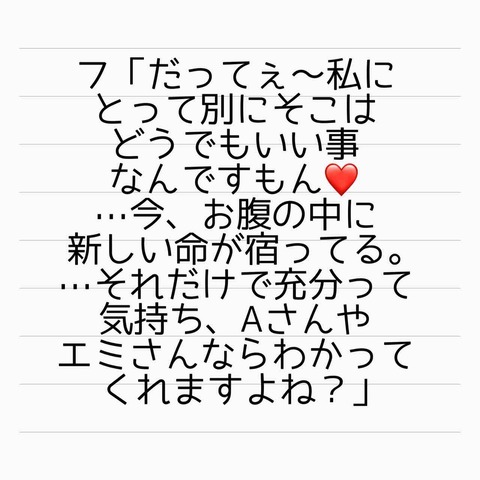 フ「だってぇ〜私に
とって別にそこは
どうでもいい事
なんですもん❤️
…今、お腹の中に
新しい命が宿ってる。
…それだけで充分って
気持ち、Aさんや
エミさんならわかって
くれますよね？」